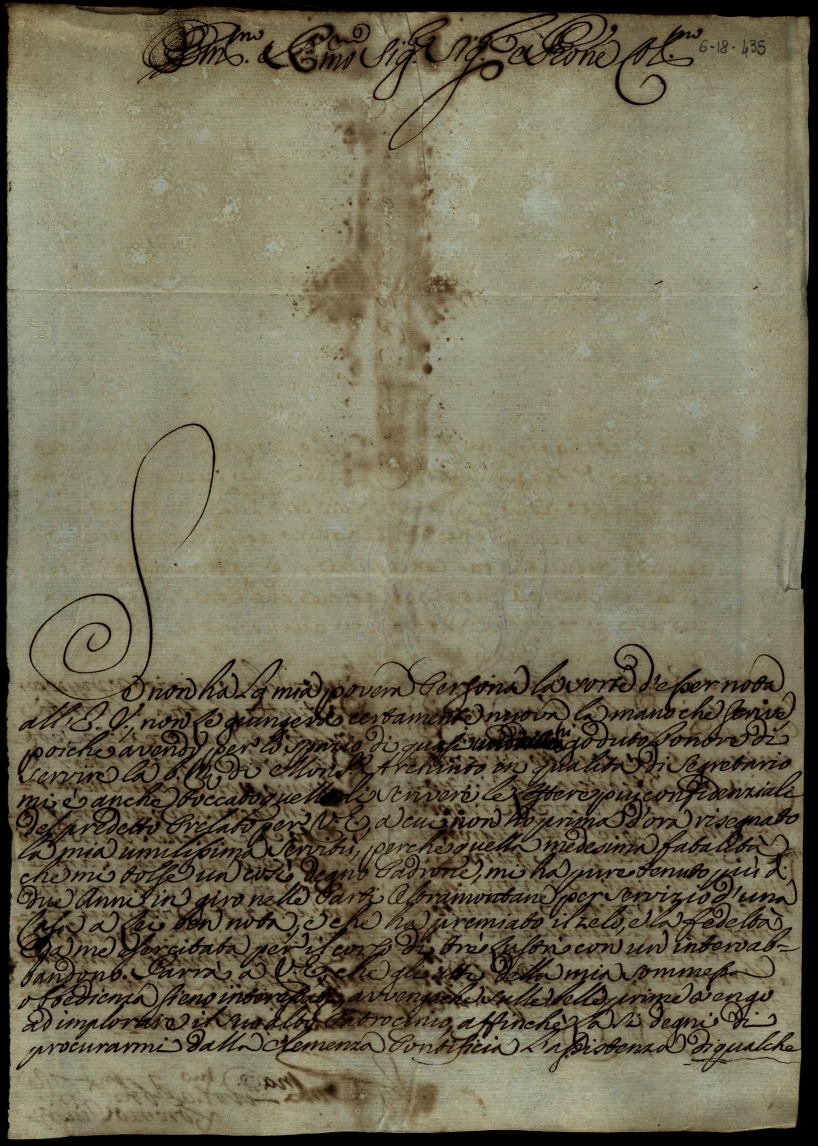 Em.mo e R.mo Sig.r Sig.r e Prone Col.mo
6-18-435
Se non ha la mia povera Persona la sorte d'esser nota
all'E. V., non le giungerà certamente nuova la mano che scrive,
poiche avendo per lo spazio di quasi goduto l'onore di
servire la b. m. di Mons.r Archinto in qualità di Segretario
mi è anche toccato quello di scrivere le lettere più confidenziali
del predetto Prelato per V. E., a cui non ho prima d'ora risegnato
la mia umilissima servitù, perche quella medesima fatalità
che mi tolse un così degno Padrone, mi ha pure tenuto più di
due Anni in giro nelle Parti Oltramontane per servizio d'una
Casa a Lei ben nota, e che ha premiato il zelo, e la fedeltà
da me esercitata per il corso di tre lustri con un intero ab=
bandono. Parrà a V. E. che gli atti della mia sommessa
obbedienza sieno interessati, avvengache sulle belle prime vengo
ad implorare il suo alto Patrocinio, affinche la si degni di
procurarmi dalla Clemenza Pontificia l'assistenza di qualche